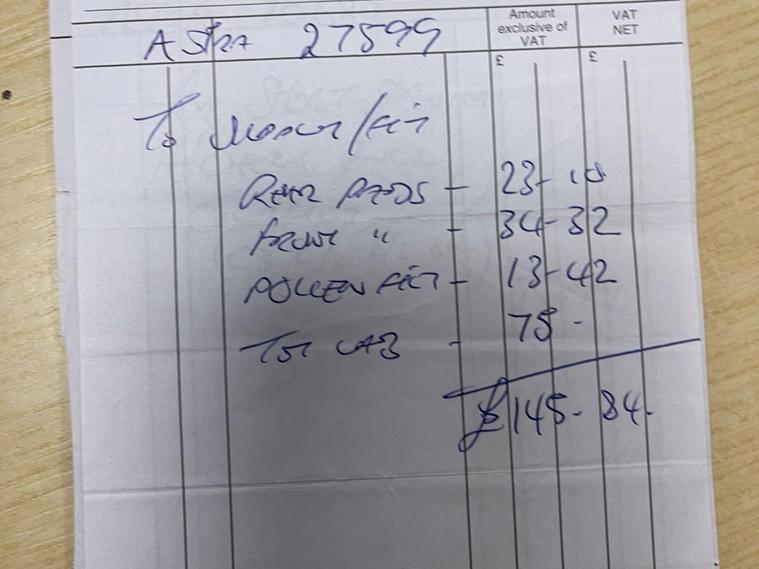 Amount
exclusive of
VAT
VAT
NET
ASTRA 27599
£ £
To /Fit
REAR PADS - 23-10
FRONT " - 34-32
POLLEN FILT - 13-42
TOT LAB - 75 -
£145-84.